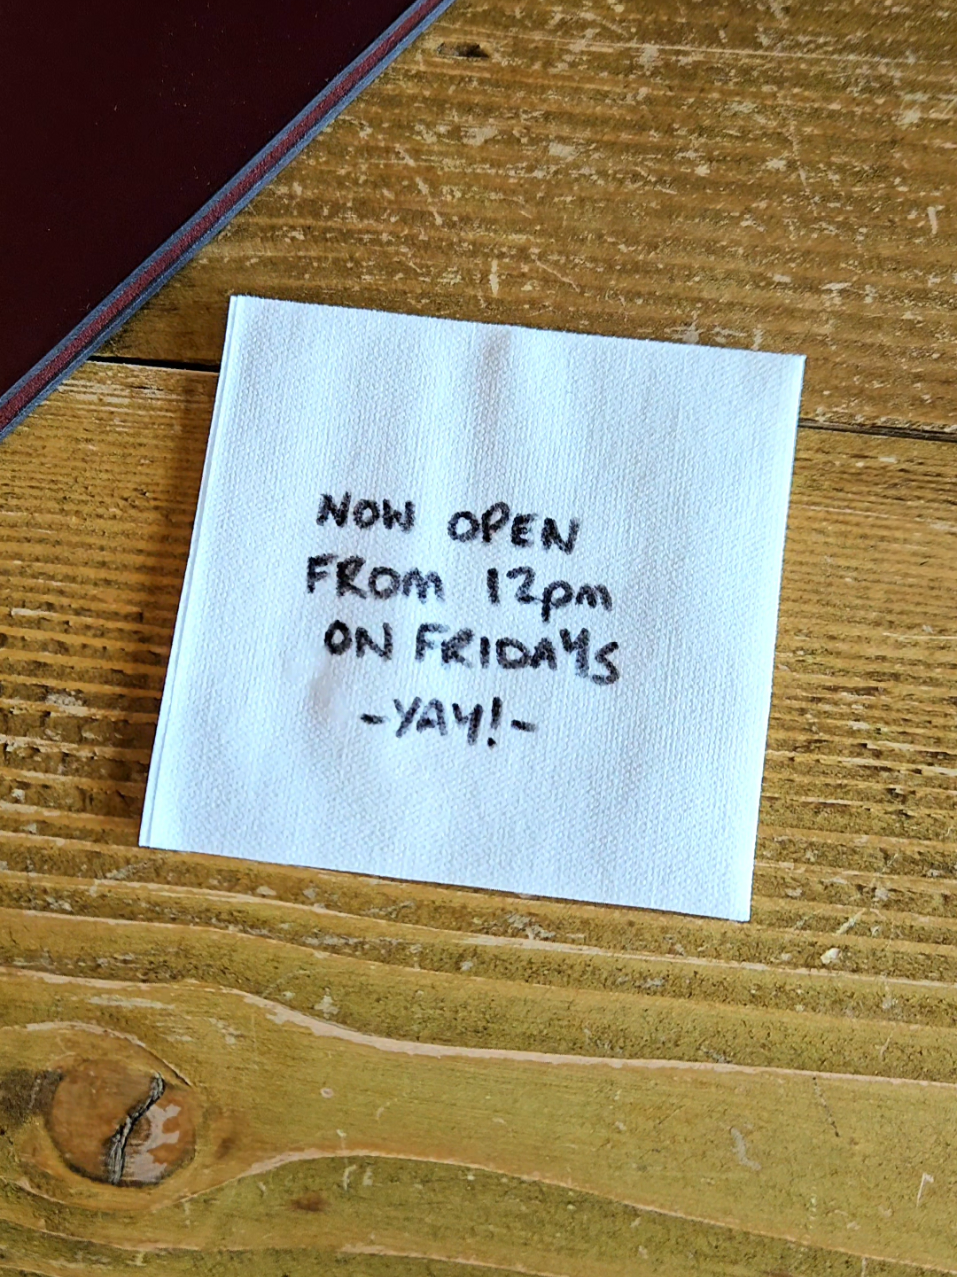 NOW OPEN
FROM 12pm
ON FRIDAYS
-YAY!-